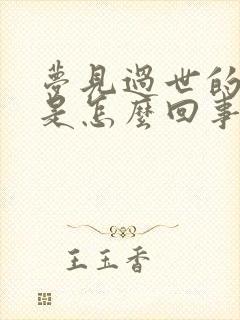 夢見過世的
是怎麼回事
王玉香